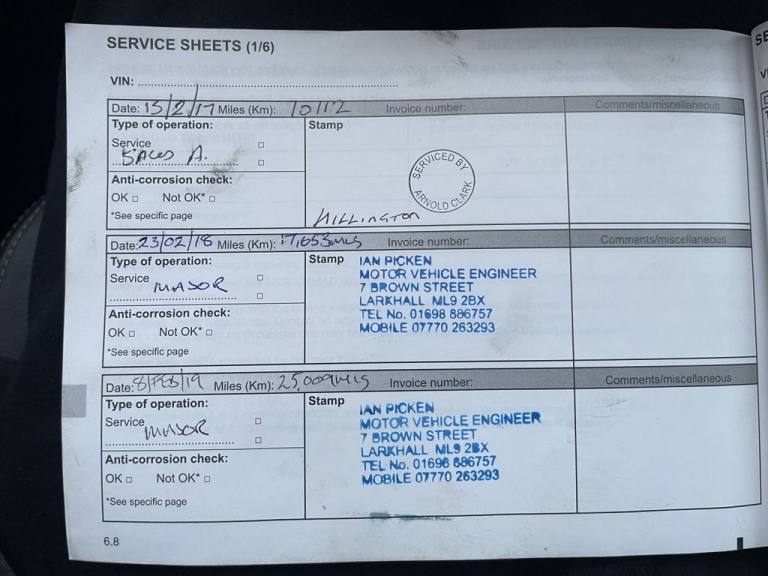 SERVICE SHEETS (1/6)
VIN:
Date: 13/2/17 Miles (Km): 10112 Invoice number: Comments/miscellaneous
Type of operation:
Service
A.
Anti-corrosion check:
OK Not OK*
*See specific page
Stamp
SERVICED BY
ARNOLD CLARK
HILLINGTON
Date: 23/02/18 Miles (Km): 17,653 MLS Invoice number: Comments/miscellaneous
Type of operation:
Service
MAJOR
Anti-corrosion check:
OK Not OK*
*See specific page
Stamp
IAN PICKEN
MOTOR VEHICLE ENGINEER
7 BROWN STREET
LARKHALL ML9 2BX
TEL No. 01698 886757
MOBILE 07770 263293
Date: 8/FEB/19 Miles (Km): 25,009 MLS Invoice number: Comments/miscellaneous
Type of operation:
Service
MAJOR
Anti-corrosion check:
OK Not OK*
*See specific page
Stamp
IAN PICKEN
MOTOR VEHICLE ENGINEER
7 BROWN STREET
LARKHALL ML9 2BX
TEL No. 01698 886757
MOBILE 07770 263293
6.8
SE